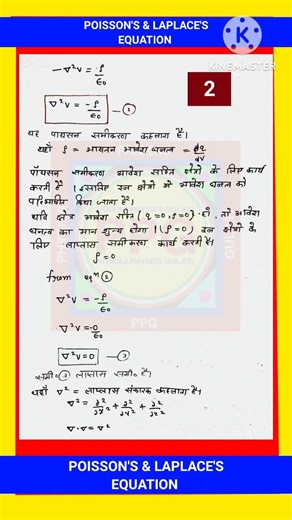 POISSON'S & LAPLACE'S
EQUATION
KINEMASTER
2
-∇²V = ρ/ε₀
∇²V = -ρ/ε₀
यह पायसन समीकरण कहलाता है।
यहाँ ρ = आयतन आवेश घनत्व = dq/dV
पॉयसन समीकरण आवेश सहित क्षेत्रों के लिए कार्य
करती है। इसलिए इन क्षेत्रों में आवेश घनत्व को
परिभाषित किया जाता है।
यदि क्षेत्र आवेश रहित (q=0, ρ=0) हो, तो आवेश
घनत्व का मान शून्य होगा। (ρ=0) इन क्षेत्रों के
लिए लाप्लास समीकरण कार्य करती है।
ρ = 0
from eqⁿ ②
∇²V = -ρ/ε₀
∇²V = -0/ε₀
∇²V = 0 — ③
समी॰ ③ लाप्लास समी॰ है।
यहाँ ∇² = लाप्लास संकारक कहलाता है।
∇² = ∂²/∂x² + ∂²/∂y² + ∂²/∂z²
∇·∇ = ∇²
PPG
POISSON'S & LAPLACE'S
EQUATION